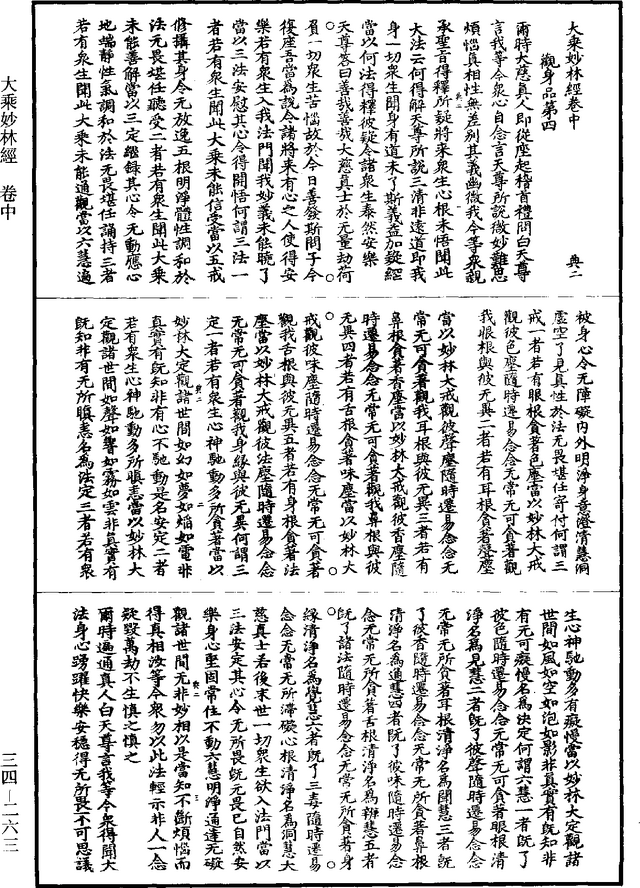 大乘妙林經 卷中
三四—二六三
大乘妙林經卷中
典二
觀身品第四
爾時大慈真人即從座起稽首禮問白天尊
言我等今衆心自念言天尊所說微妙難思
煩惱真相性無差别其義幽微我今等衆觀
承聖旨得釋所疑將來衆生心根未悟聞此
大法云何得解天尊所說三清非遠道即我
身一切衆生聞身有道未了斯義益加疑經
當以何法得釋彼疑令諸衆生泰然安樂
天尊荅曰善哉善哉大慈真士於无量劫荷
負一切衆生苦惱故於今日善發斯問子今
復座吾當爲說令諸將來有心之人使得安
樂若有衆生入我法門聞我妙義未能曉了
當以三法安慰其心令得開悟何謂三法一
者若有衆生聞此大乘未能信受當以五戒
修攝其身令无放逸五根明淨體性調和於
法元畏堪任聽受二者若有衆生聞此大乘
未能善解當以三定鍜録其心令无動應心
地端靜性氣調和於法无畏堪任誦持三者
若有衆生聞此大乘未能通觀當以六慧遍
被身心令无障礙内外明淨身意澄清慧洞
虛空了見真性於法无畏堪任寄付何謂三
戒一者若有眼根貪著色塵當以妙林大戒
觀彼色塵隨時遷易念念无常无可貪著觀
我眼根與彼无異二者若有耳根貪著聲塵
當以妙林大戒觀彼聲塵隨時遷易念念无
常无可貪著觀我耳根與彼无異三者若有
鼻根貪著香塵當以妙林大戒觀彼香塵隨
時遷易念念无常无可貪著觀我鼻根與彼
无異四者若有舌根貪著味塵當以妙林大
戒觀彼味塵隨時遷易念念无常无可貪著
觀我舌根與彼无異五者若有身根貪著法
塵當以妙林大戒觀彼法塵隨時遷易念念
无常无可貪著觀我身緣與彼无異何謂三
定一者若有衆生心神馳動多所貪著當以
妙林大定觀諸世間如幻如夢如焰如電非
真實有旣知非有心不馳動是名安定二者
若有衆生心神馳動多所瞋恚當以妙林大
定觀諸世間如聲如響如霧如雲非真實有
旣知非有无所瞋恚名爲法定三者若有衆
生心神馳動多有癡慢當以妙林大定觀諸
世間如風如空如泡如影非真實有旣知非
有无可癡慢名爲決定何謂六慧一者旣了
彼色隨時遷易念念无常无可貪著眼根清
淨名爲見慧二者旣了彼聲隨時遷易念念
无常无所貪著耳根清淨名爲聞慧三者旣
了彼香隨時遷易念念无常无所貪著鼻根
清淨名爲通慧四者旣了彼味隨時遷易念
念无常无所貪著舌根清淨名爲辯慧五者
旣了諸法隨時遷易念念无常无所貪著身
緣清淨名爲覺慧六者旣了三毒隨時遷易
念念无常无所滯礙心根清淨名爲洞慧大
慈真士若後末世一切衆生欲入法門當以
三法安定其心令无所畏旣无畏已自然安
樂身心堅固常住不動六慧明淨通達无礙
觀諸世間无非妙相以是當知不斷煩惱而
得真相汝等今衆勿以此法輕示非人一念
疑毀萬劫不生慎之慎之
爾時遍通真人白天尊言我等今衆得聞大
法身心踴躍快樂安穩得无所畏不可思議